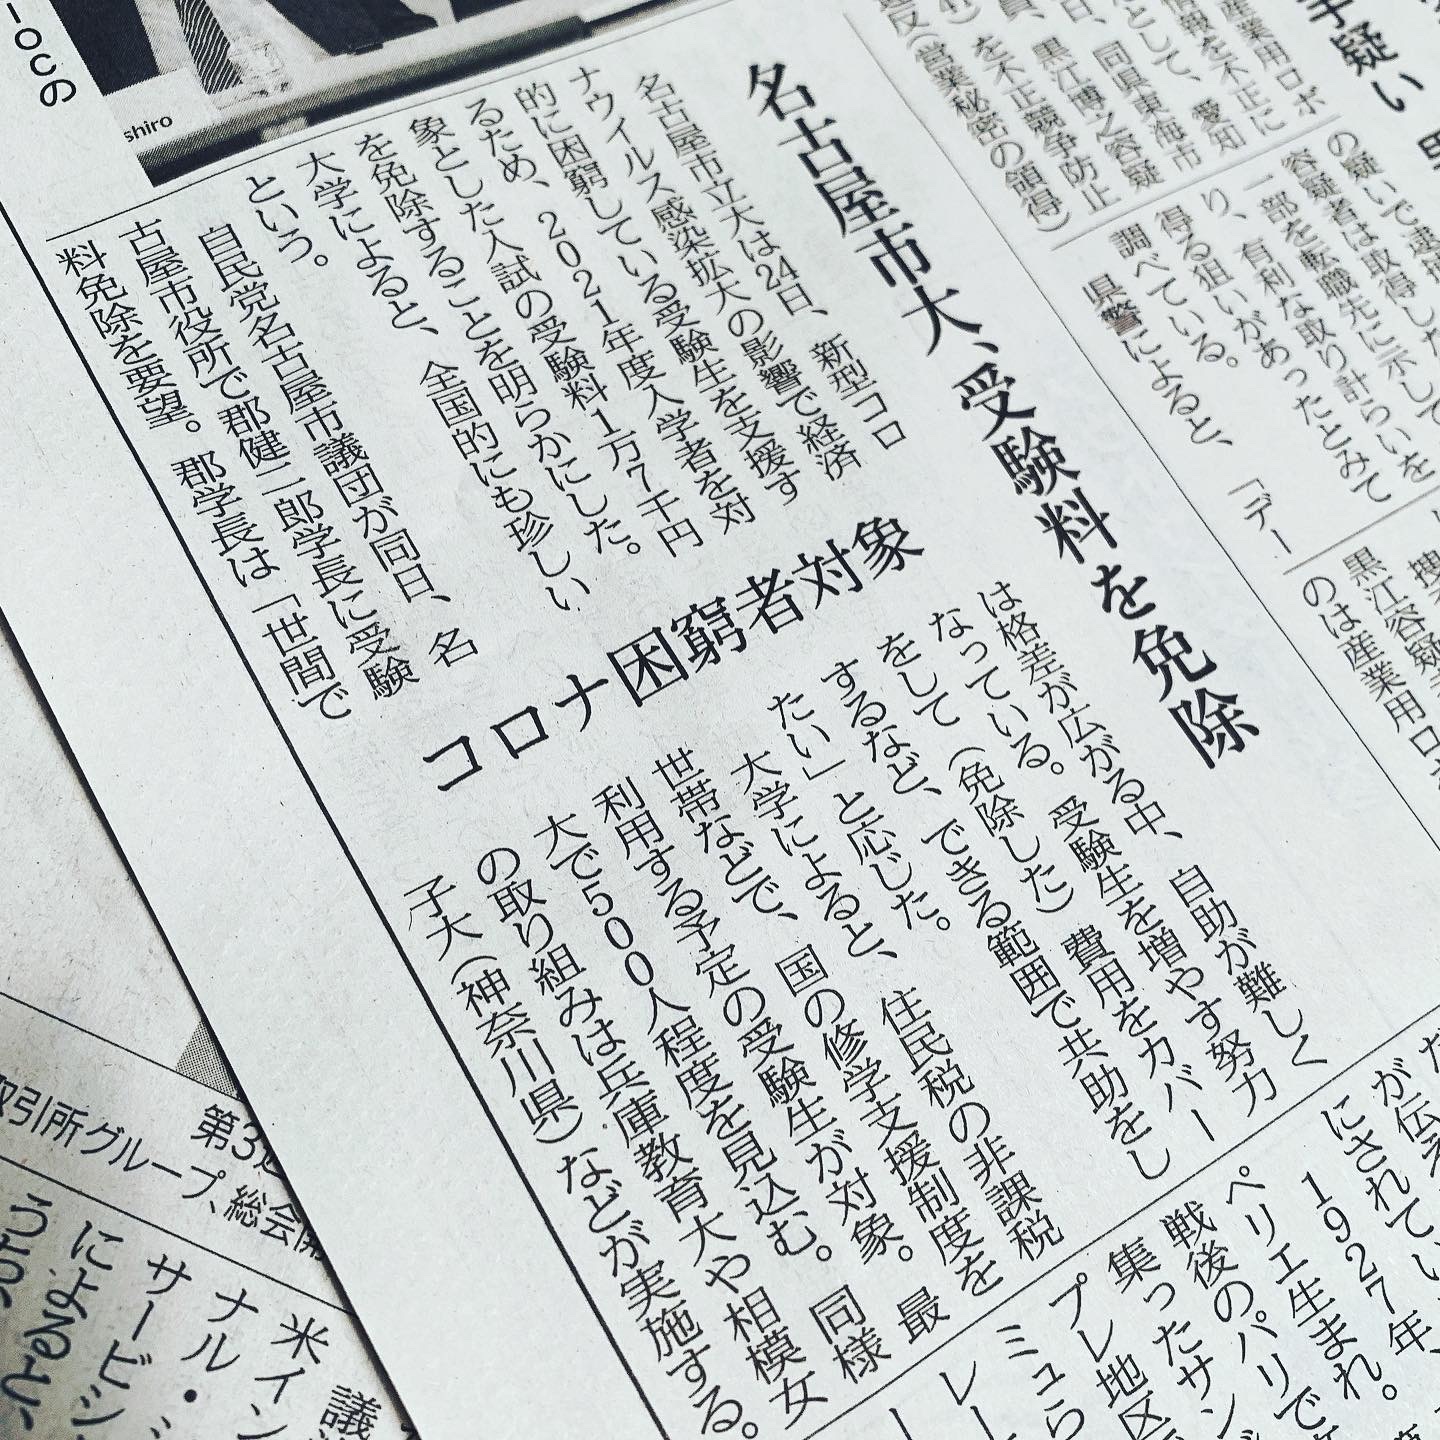 名古屋市大、受験料を免除
コロナ困窮者対象
名古屋市立大は24日、新型コロ
ナウイルス感染拡大の影響で経済
的に困窮している受験生を支援す
るため、2021年度入学者を対
象とした入試の受験料1万7千円
を免除することを明らかにした。
大学によると、全国的にも珍しい
という。
自民党名古屋市議団が同日、名
古屋市役所で郡健二郎学長に受験
料免除を要望。郡学長は「世間で
は格差が広がる中、自助が難しく
なっている。受験生を増やす努力
をして(免除した)費用をカバー
するなど、できる範囲で共助をし
たい」と応じた。
大学によると、住民税の非課税
世帯などで、国の修学支援制度を
利用する予定の受験生が対象。最
大で500人程度を見込む。同様
の取り組みは兵庫教育大や相模女
子大(神奈川県)などが実施する。
手疑い
産業用ロボ
情報を不正に
として、愛知
同県東海市
黒江博之容疑
を不正競争防止
反(営業秘密の領得)
の疑いで逮捕した
容疑者は取得した
一部を転職先に示して
、有利な取り計らいを
得る狙いがあったとみて
調べている。
県警によると、「デー
黒江容疑
のは産業用ロ
が伝え
にされてい
1927年、
ペリエ生まれ。
戦後のパリで
集ったサン
プレ地区
ミュら
レー
IOCの
shiro
第3
取引所グループ、総会
米イン
ナル・
サービ
による
議